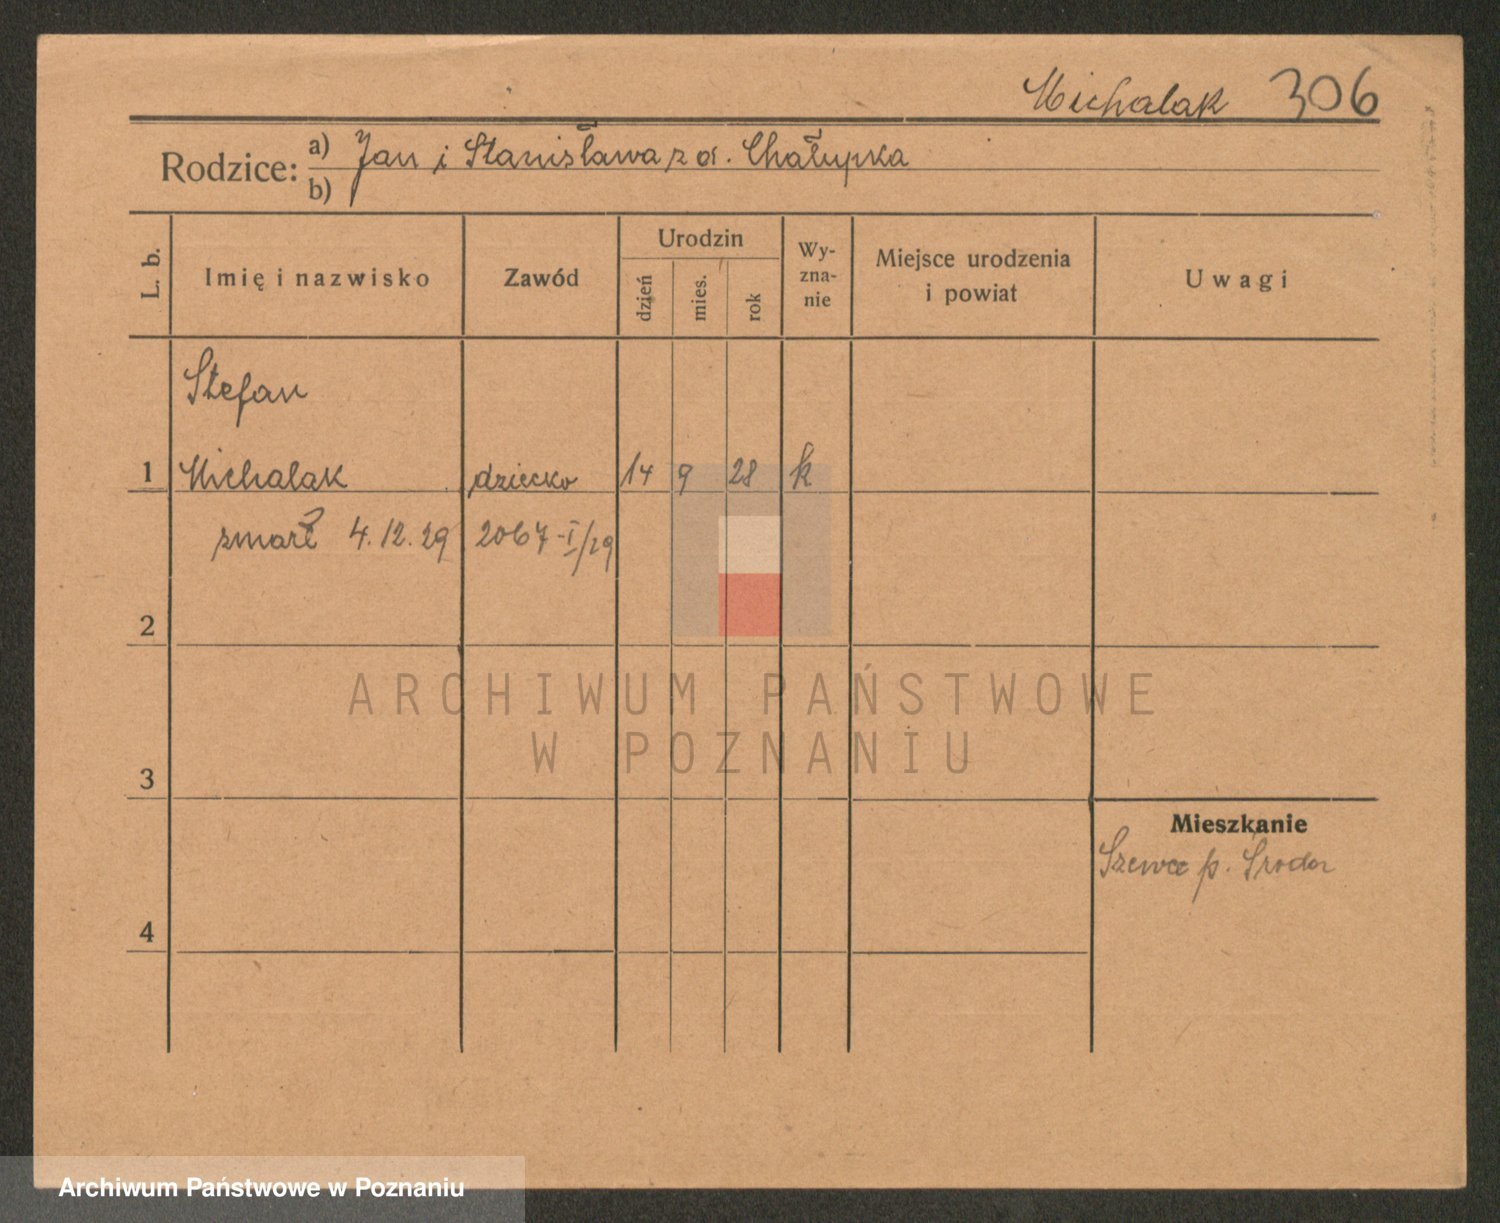 Michalak 306
Rodzice: a) Jan i Stanisława z d. Chałupka
b)
L. b.
Imię i nazwisko
Zawód
Urodzin
dzień
mies.
rok
Wy-
zna-
nie
Miejsce urodzenia
i powiat
Uwagi
Stefan
1 Michalak dziecko 14 9 28 k
zmarł 4.12.29 2067-I/29
2
ARCHIWUM PAŃSTWOWE
W POZNANIU
3
Mieszkanie
Szewce p. Środa
4
Archiwum Państwowe w Poznaniu